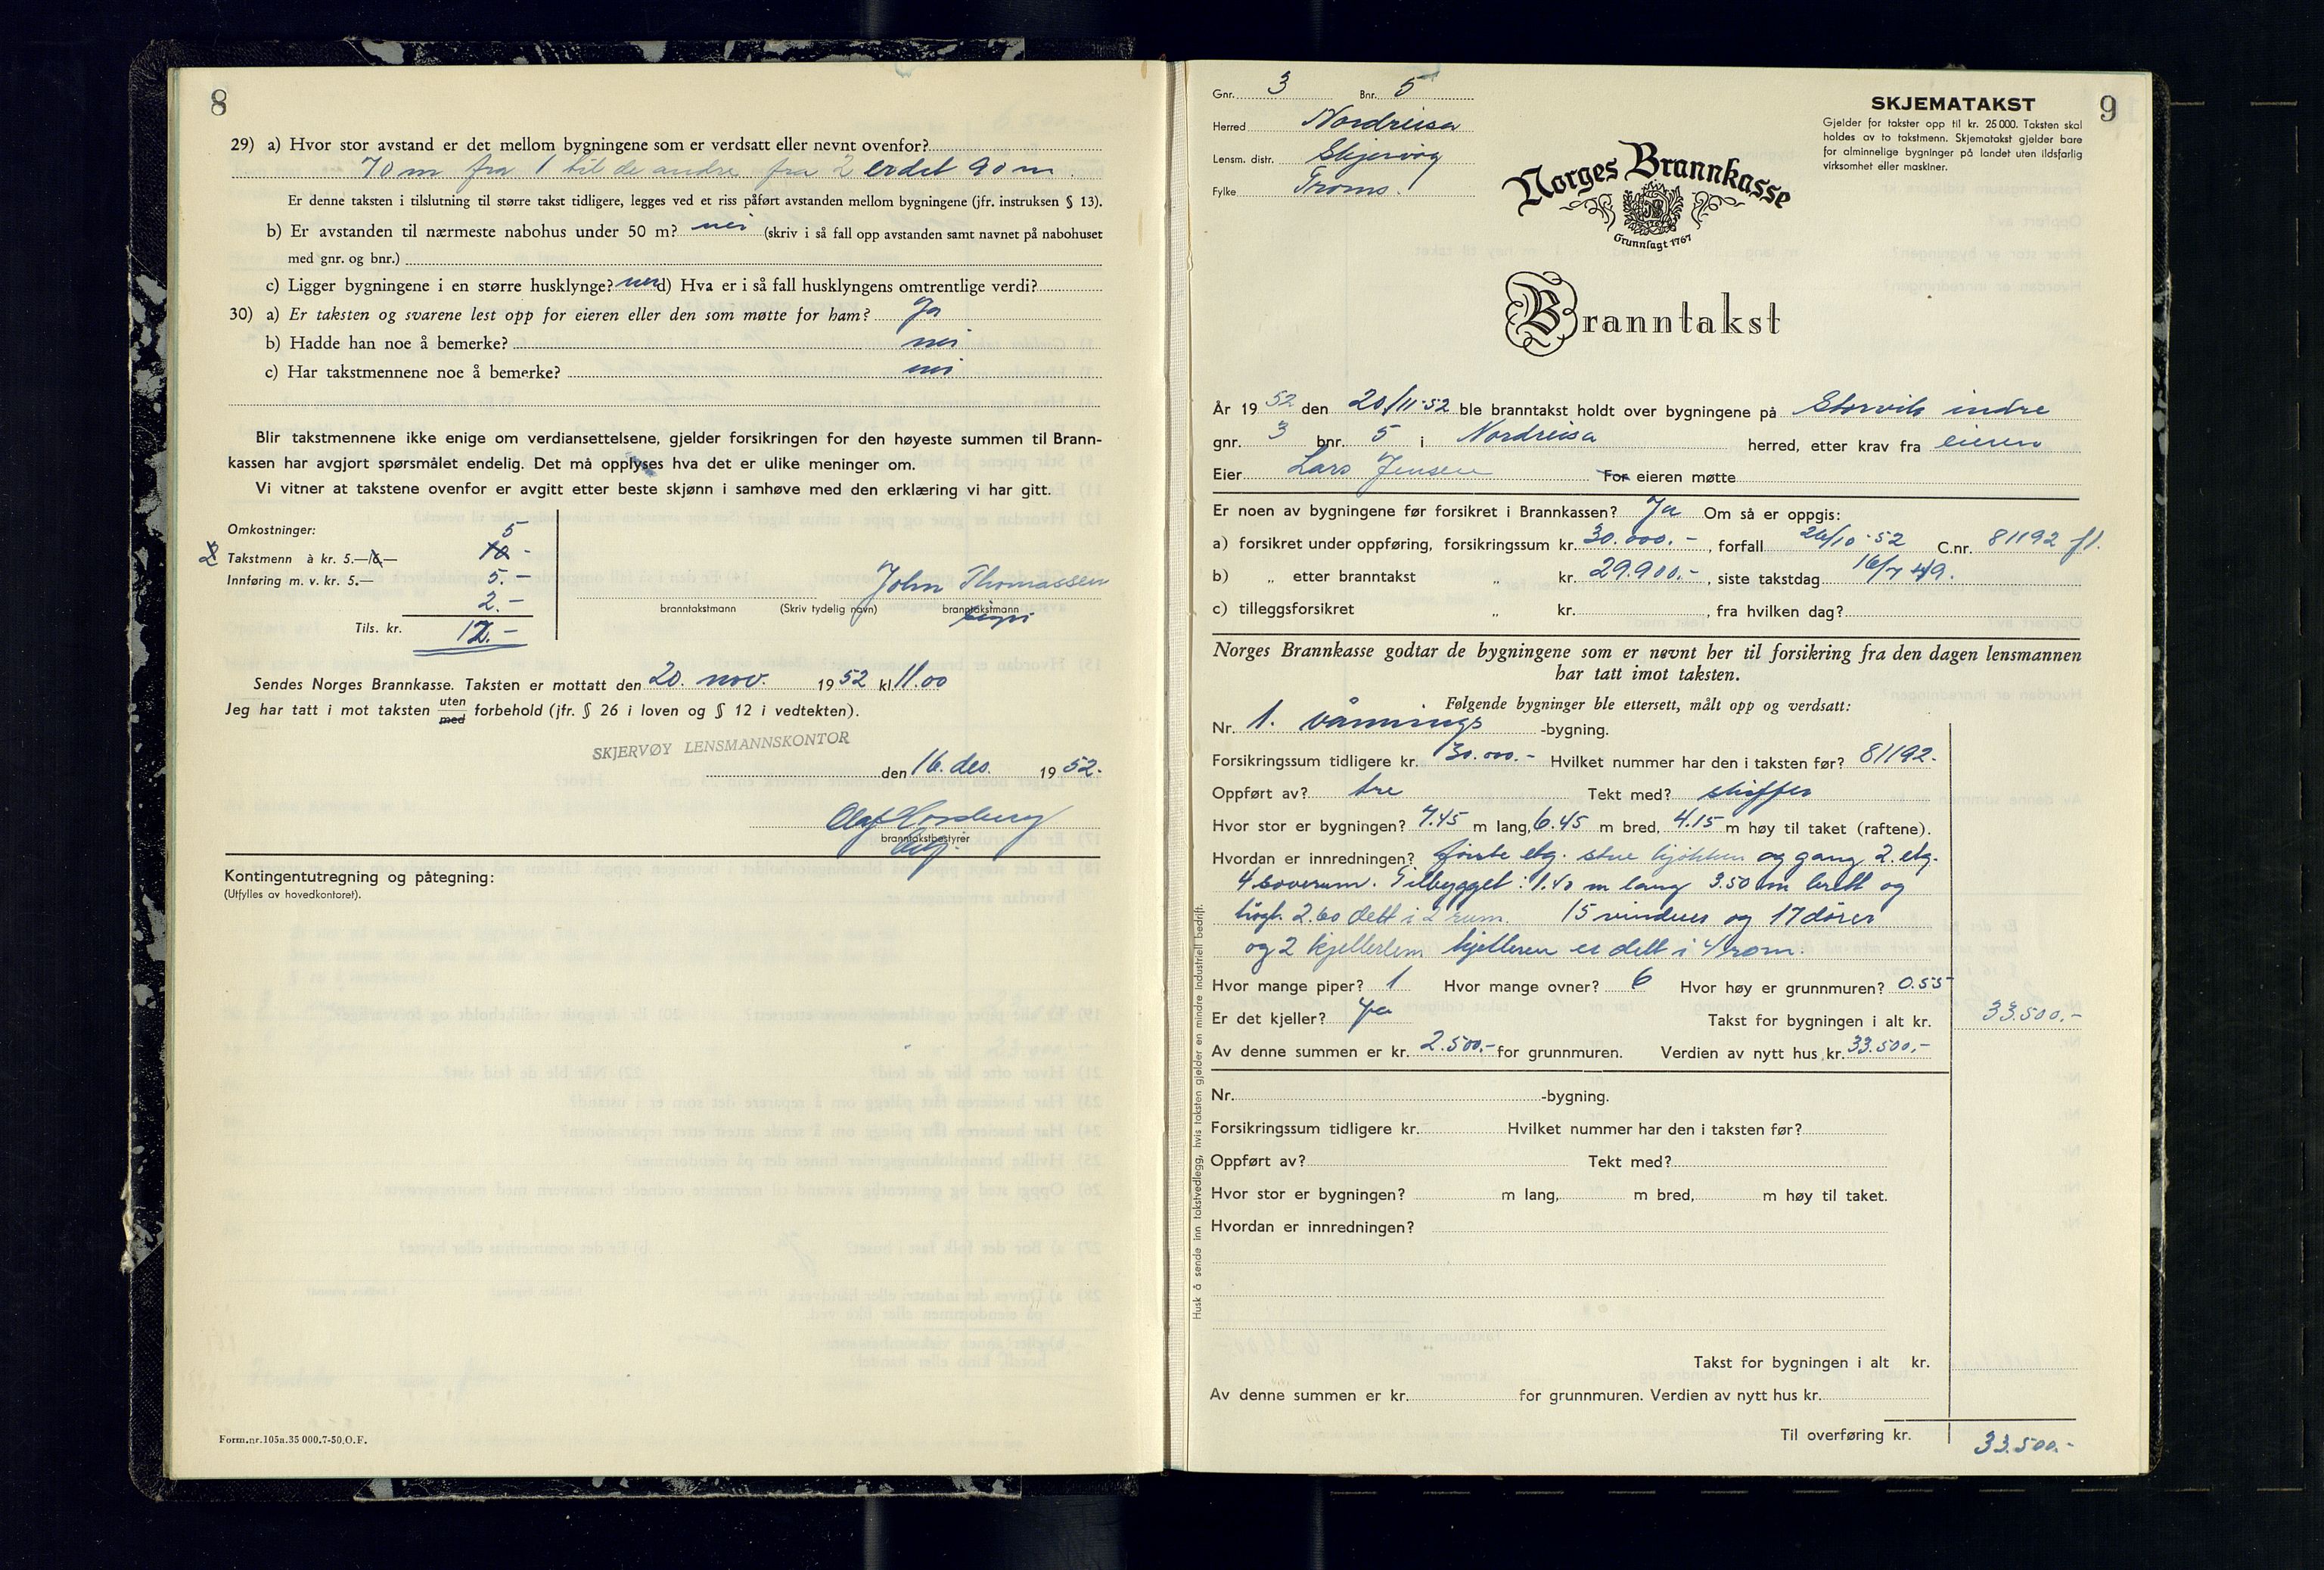 8
29) a) Hvor stor avstand er det mellom bygningene som er verdsatt eller nevnt ovenfor?
70 m fra 1 til de andre fra 2 er det 90 m
Er denne taksten i tilslutning til større takst tidligere, legges ved et riss påført avstanden mellom bygningene (jfr. instruksen § 13).
b) Er avstanden til nærmeste nabohus under 50 m? nei (skriv i så fall opp avstanden samt navnet på nabohuset
med gnr. og bnr.)
c) Ligger bygningene i en større husklynge? nei d) Hva er i så fall husklyngens omtrentlige verdi?
30) a) Er taksten og svarene lest opp for eieren eller den som møtte for ham? Ja
b) Hadde han noe å bemerke? nei
c) Har takstmennene noe å bemerke? nei
Blir takstmennene ikke enige om verdiansettelsene, gjelder forsikringen for den høyeste summen til Brann-
kassen har avgjort spørsmålet endelig. Det må opplyses hva det er ulike meninger om.
Vi vitner at takstene ovenfor er avgitt etter beste skjønn i samhøve med den erklæring vi har gitt.
Omkostninger: 5
2 Takstmenn à kr. 5.—/6,— 10 -
Innføring m. v. kr. 5.— 5.-
2.-
Tils. kr. 12.-
John Thomassen
branntakstmann (Skriv tydelig navn) branntakstmann
Sendes Norges Brannkasse. Taksten er mottatt den 20. nov. 1952 kl 11.00
Jeg har tatt i mot taksten uten med forbehold (jfr. § 26 i loven og § 12 i vedtekten).
SKJERVØY LENSMANNSKONTOR
den 16. des. 1952.
Olaf
branntakstbestyrer
Kontingentutregning og påtegning:
(Utfylles av hovedkontoret).
Form.nr.105a.35 000.7-50.O.F.
9
Gnr. 3 Bnr. 5
Herred Nordreisa
Lensm. distr. Skjervøy
Fylke Troms.
SKJEMATAKST
Gjelder for takster opp til kr. 25 000. Taksten skal
holdes av to takstmenn. Skjematakst gjelder bare
for alminnelige bygninger på landet uten ildsfarlig
virksomhet eller maskiner.
Norges Brannkasse
Grunnlagt 1767
Branntakst
År 1952 den 20/11-52 ble branntakst holdt over bygningene på Storvik indre
gnr. 3 bnr. 5 i Nordreisa herred, etter krav fra eieren
Eier Lars Jensen For eieren møtte
Er noen av bygningene før forsikret i Brannkassen? Ja Om så er oppgis:
a) forsikret under oppføring, forsikringssum kr. 30.000.- , forfall 26/10-52 C.nr. 81192 fl.
b) „ etter branntakst „ kr. 29.900.- , siste takstdag 16/7 49.
c) tilleggsforsikret „ kr. , fra hvilken dag?
Norges Brannkasse godtar de bygningene som er nevnt her til forsikring fra den dagen lensmannen
har tatt imot taksten.
Følgende bygninger ble ettersett, målt opp og verdsatt:
Nr. 1. vånnings -bygning.
Forsikringssum tidligere kr. 30.000.- Hvilket nummer har den i taksten før? 81192.
Oppført av? tre Tekt med? skiffer
Hvor stor er bygningen? 7.45 m lang, 6.45 m bred, 4.15 m høy til taket (raftene).
Hvordan er innredningen? første etg. stue kjøkken og gang 2. etg.
4 soverum. Tilbygget: 1.40 m lang 3.50 m brett og
høgt. 2.60 delt i 2 rum. 15 vinduer og 17 dører
og 2 kjellerlem kjelleren er delt i 4 rom.
Hvor mange piper? 1 Hvor mange ovner? 6 Hvor høy er grunnmuren? 0.55
Er det kjeller? Ja Takst for bygningen i alt kr. 33.500.-
Av denne summen er kr. 2.500.- for grunnmuren. Verdien av nytt hus kr. 33.500.-
Nr. -bygning.
Forsikringssum tidligere kr. Hvilket nummer har den i taksten før?
Oppført av? Tekt med?
Hvor stor er bygningen? m lang, m bred, m høy til taket.
Hvordan er innredningen?
Takst for bygningen i alt kr.
Av denne summen er kr. for grunnmuren. Verdien av nytt hus kr.
Til overføring kr. 33.500.-
Husk å sende inn takstvedlegg, hvis taksten gjelder en mindre industriell bedrift.